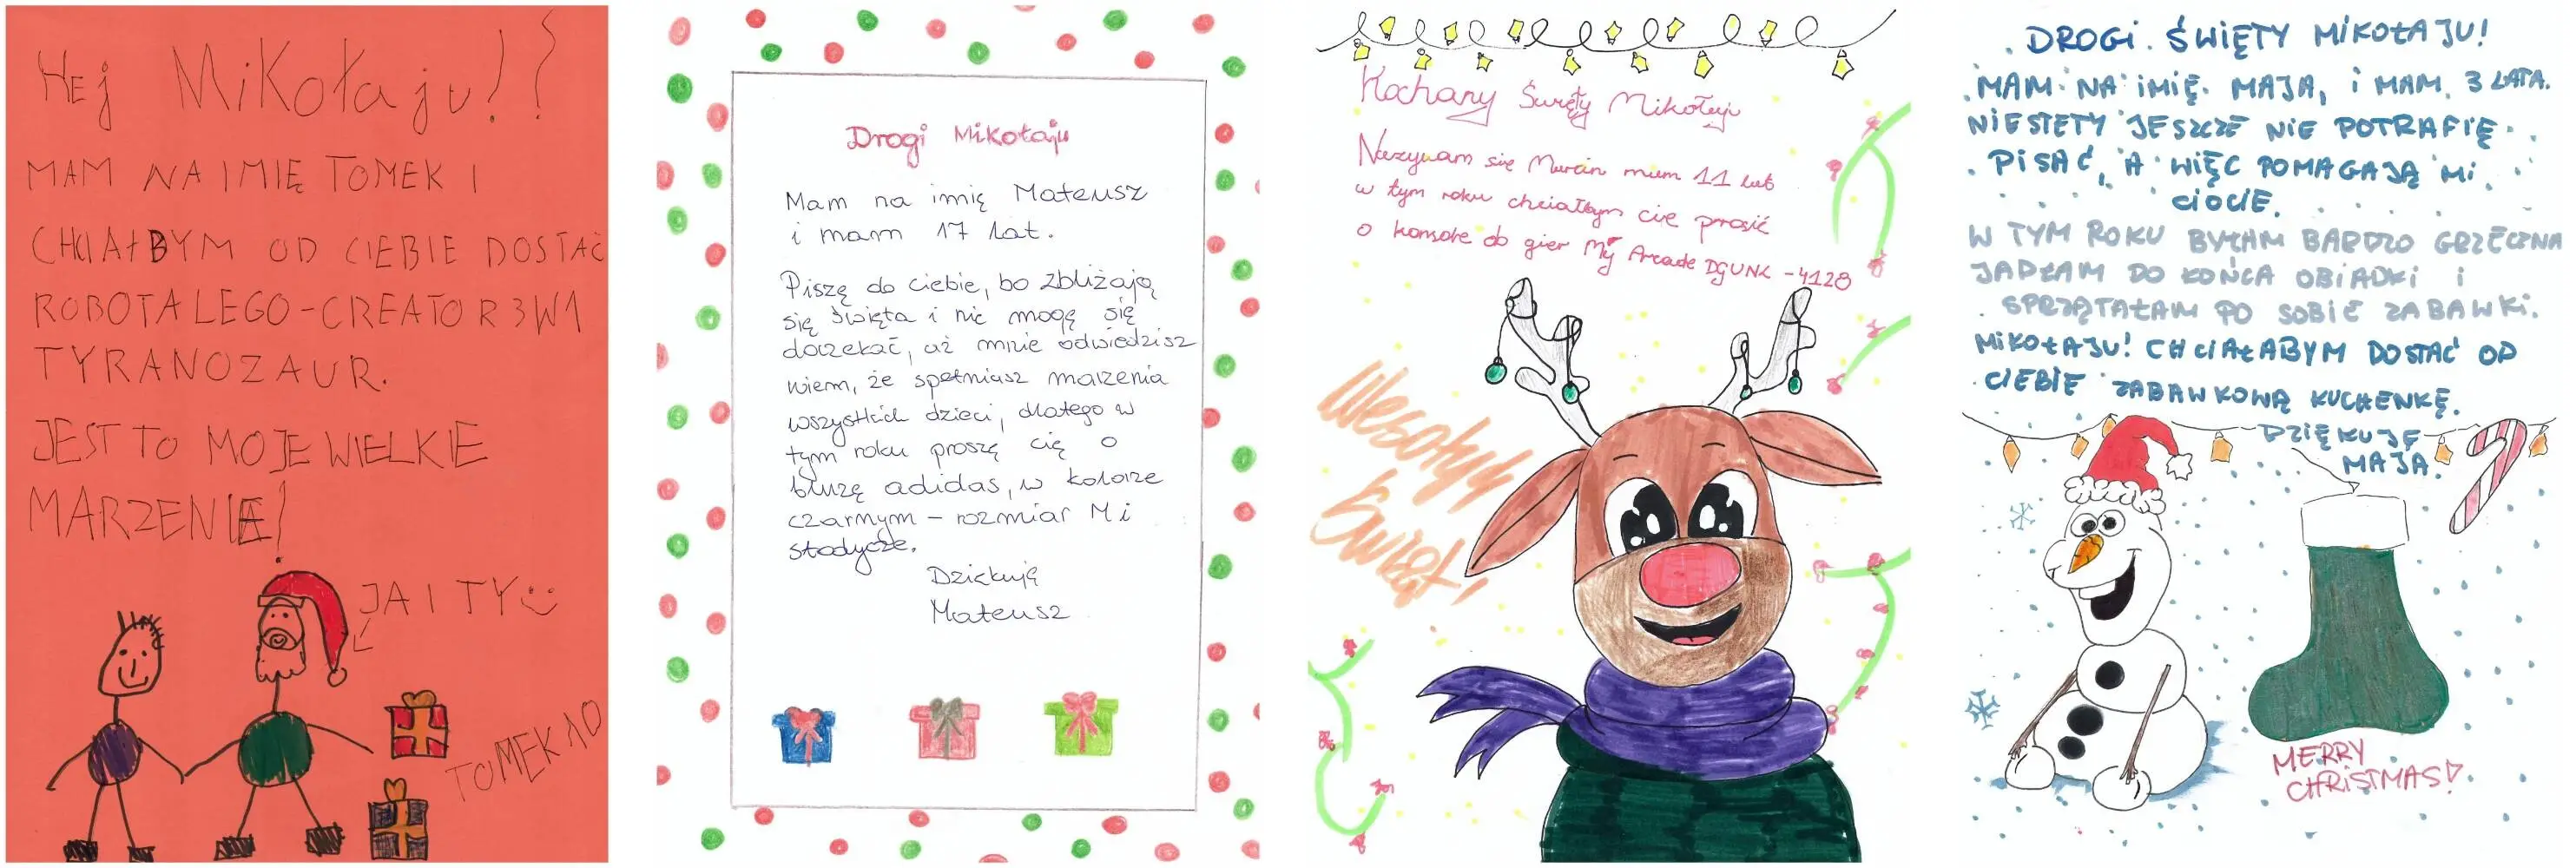 Hej Mikołaju!?
MAM NA IMIĘ TOMEK I
CHCIAŁBYM OD CIEBIE DOSTAĆ
ROBOTA LEGO-CREATOR 3W1
TYRANOZAUR.
JEST TO MOJE WIELKIE
MARZENIE!
JA I TY
TOMEK
Drogi Mikołaju
Mam na imię Mateusz
i mam 17 lat.
Piszę do ciebie, bo zbliżają
się święta i nie mogę się
doczekać, aż mnie odwiedzisz
wiem, że spełniasz marzenia
wszystkich dzieci, dlatego w
tym roku proszę cię o
bluzę adidas, w kolorze
czarnym – rozmiar M i
słodycze.
Dziękuję
Mateusz
Kochany Święty Mikołaju
Nazywam się Marcin mam 11 lat
w tym roku chciałbym cię prosić
o konsole do gier My Arcade DGUNL-4128
Wesołych
Świąt!
DROGI ŚWIĘTY MIKOŁAJU!
MAM NA IMIĘ MAJA, I MAM 3 LATA.
NIESTETY JESZCZE NIE POTRAFIĘ
PISAĆ, A WIĘC POMAGAJĄ MI
CIOCIE.
W TYM ROKU BYŁAM BARDZO GRZECZNA
JADŁAM DO KOŃCA OBIADKI I
SPRZĄTAŁAM PO SOBIE ZABAWKI.
MIKOŁAJU! CHCIAŁABYM DOSTAĆ OD
CIEBIE ZABAWKOWĄ KUCHENKĘ.
DZIĘKUJĘ
MAJA.
MERRY
CHRISTMAS!